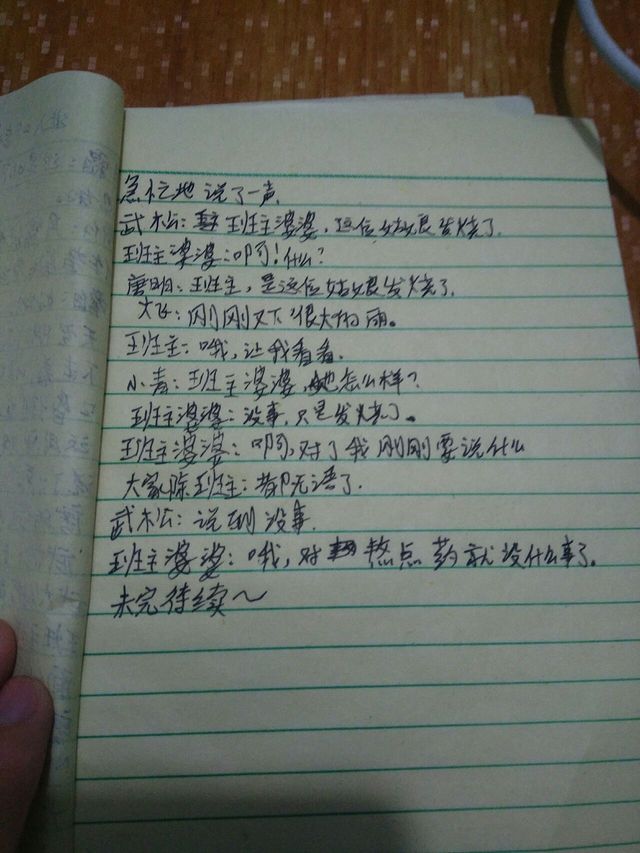 急忙地说了一声
武松：班主婆婆，这位姑娘发烧了。
班主婆婆：啊！什么？
唐明：班主，是这位姑娘发烧了。
大飞：刚刚又下很大的雨。
班主：哦，让我看看。
小青：班主婆婆，她怎么样？
班主婆婆：没事，只是发烧了。
班主婆婆：啊，对了我刚刚要说什么
大家除班主：都无语了。
武松：说到没事。
班主婆婆：哦，对 熬点药就没什么事了。
未完待续～